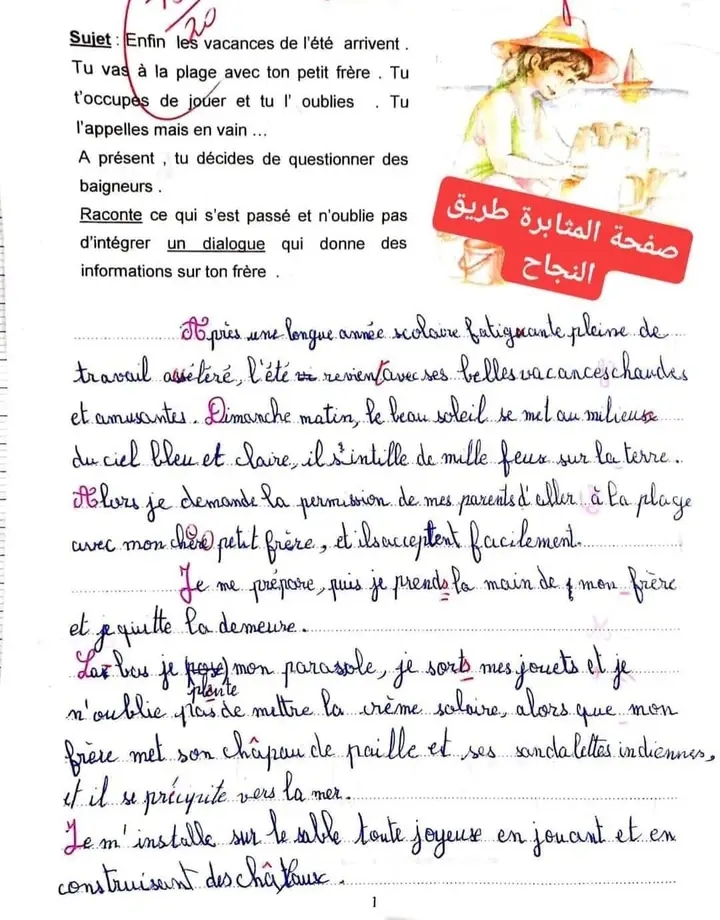 20
Sujet : Enfin les vacances de l'été arrivent .
Tu vas à la plage avec ton petit frère . Tu
t'occupes de jouer et tu l' oublies . Tu
l'appelles mais en vain ...
A présent , tu décides de questionner des
baigneurs .
Raconte ce qui s'est passé et n'oublie pas
d'intégrer un dialogue qui donne des
informations sur ton frère .
صفحة المثابرة طريق
النجاح
Après une longue année scolaire fatiguante pleine de
travail accéléré, l'été revient avec ses belles vacances chaudes
et amusantes. Dimanche matin, le beau soleil se met au milieu
du ciel bleu et claire, il s'intille de mille feux sur la terre.
Alors je demande la permission de mes parents d'aller à la plage
avec mon chère petit frère, et ils acceptent facilement.
Je me prépare, puis je prends la main de mon frère
et je quitte la demeure.
Las bas je (pose) mon parasole, je sorts mes jouets et je
plante
n'oublie pas de mettre la crème solaire, alors que mon
frère met son châpau de paille et ses sandalettes indiennes,
et il se précipite vers la mer.
Je m'installe sur le sable toute joyeuse en jouant et en
construisant des châtaux.
1